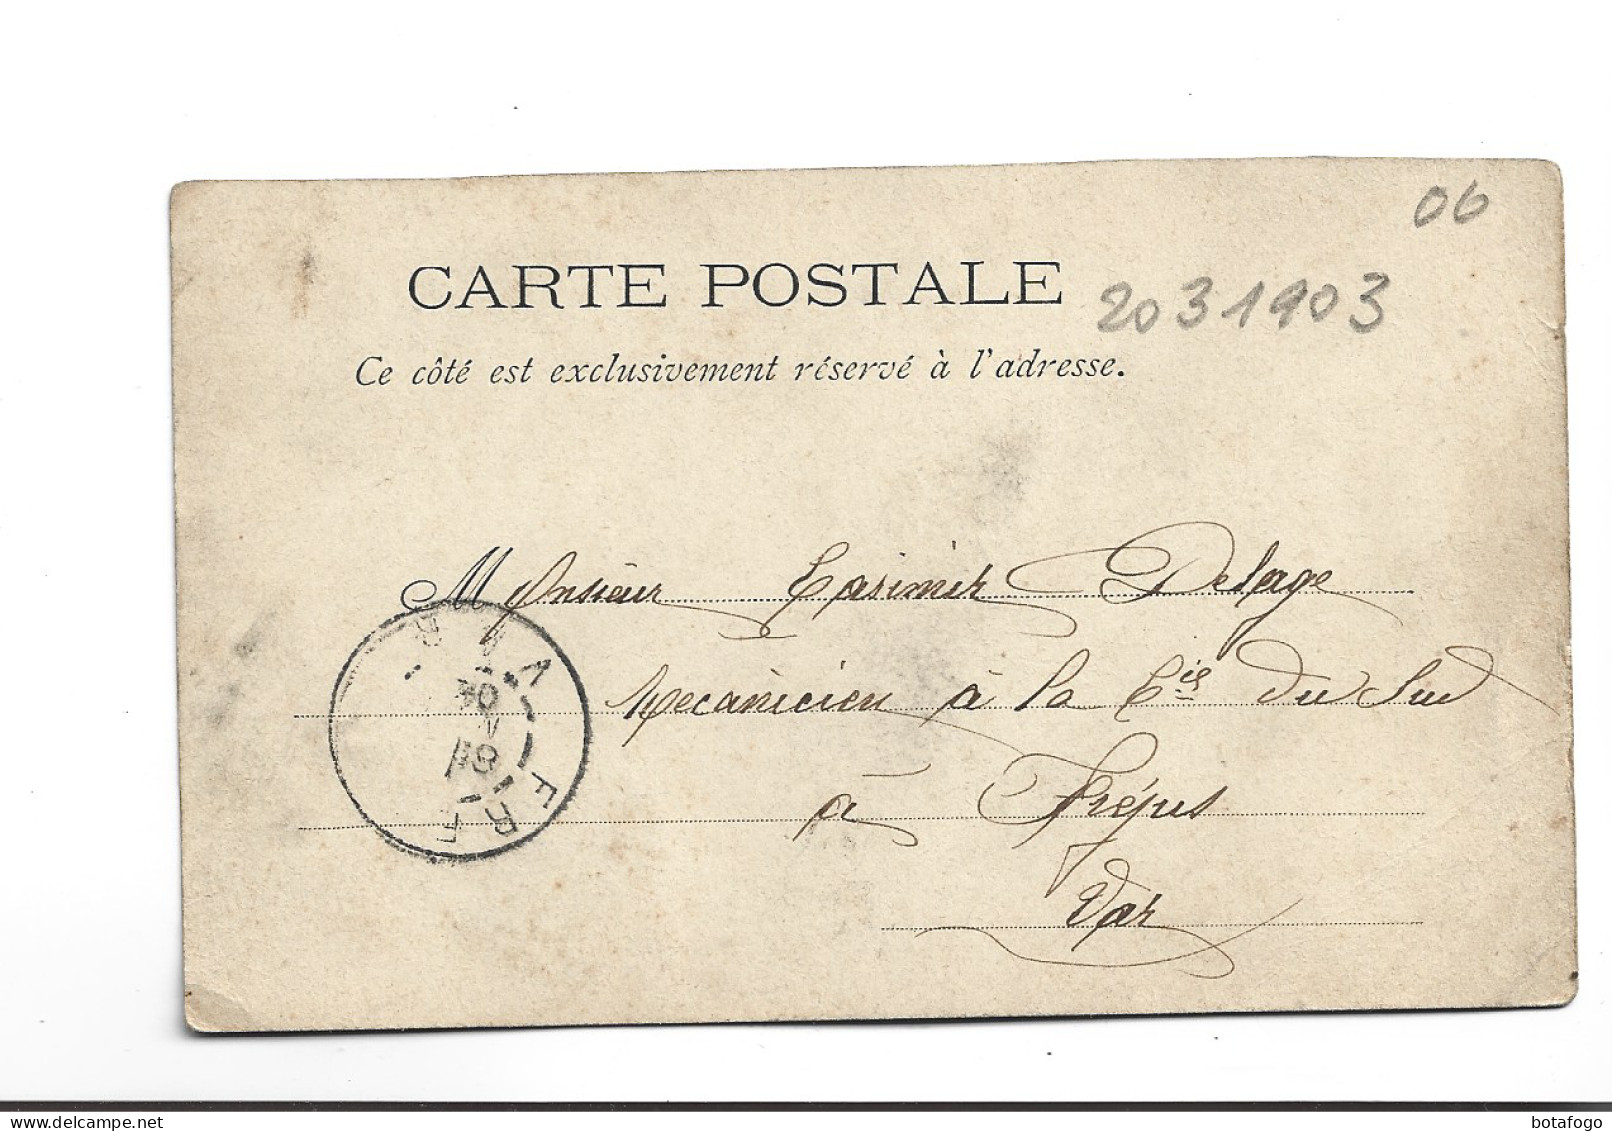 06
CARTE POSTALE
20 3 1903
Ce côté est exclusivement réservé à l'adresse.
Monsieur Casimir Delage
Mecanicien à la Cie du Sud
à Fréjus
Var
VAR
botafogo